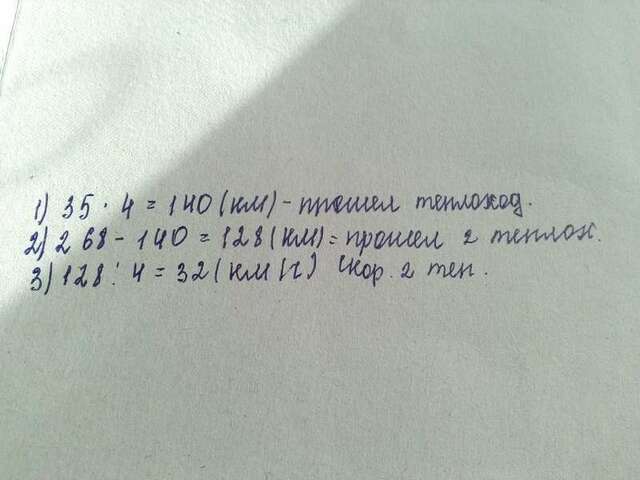 1) 35 · 4 = 140 (км) - прошел теплоход.
2) 268 - 140 = 128 (км) = прошел 2 теплох.
3) 128 : 4 = 32 (км/ч) скор. 2 теп.